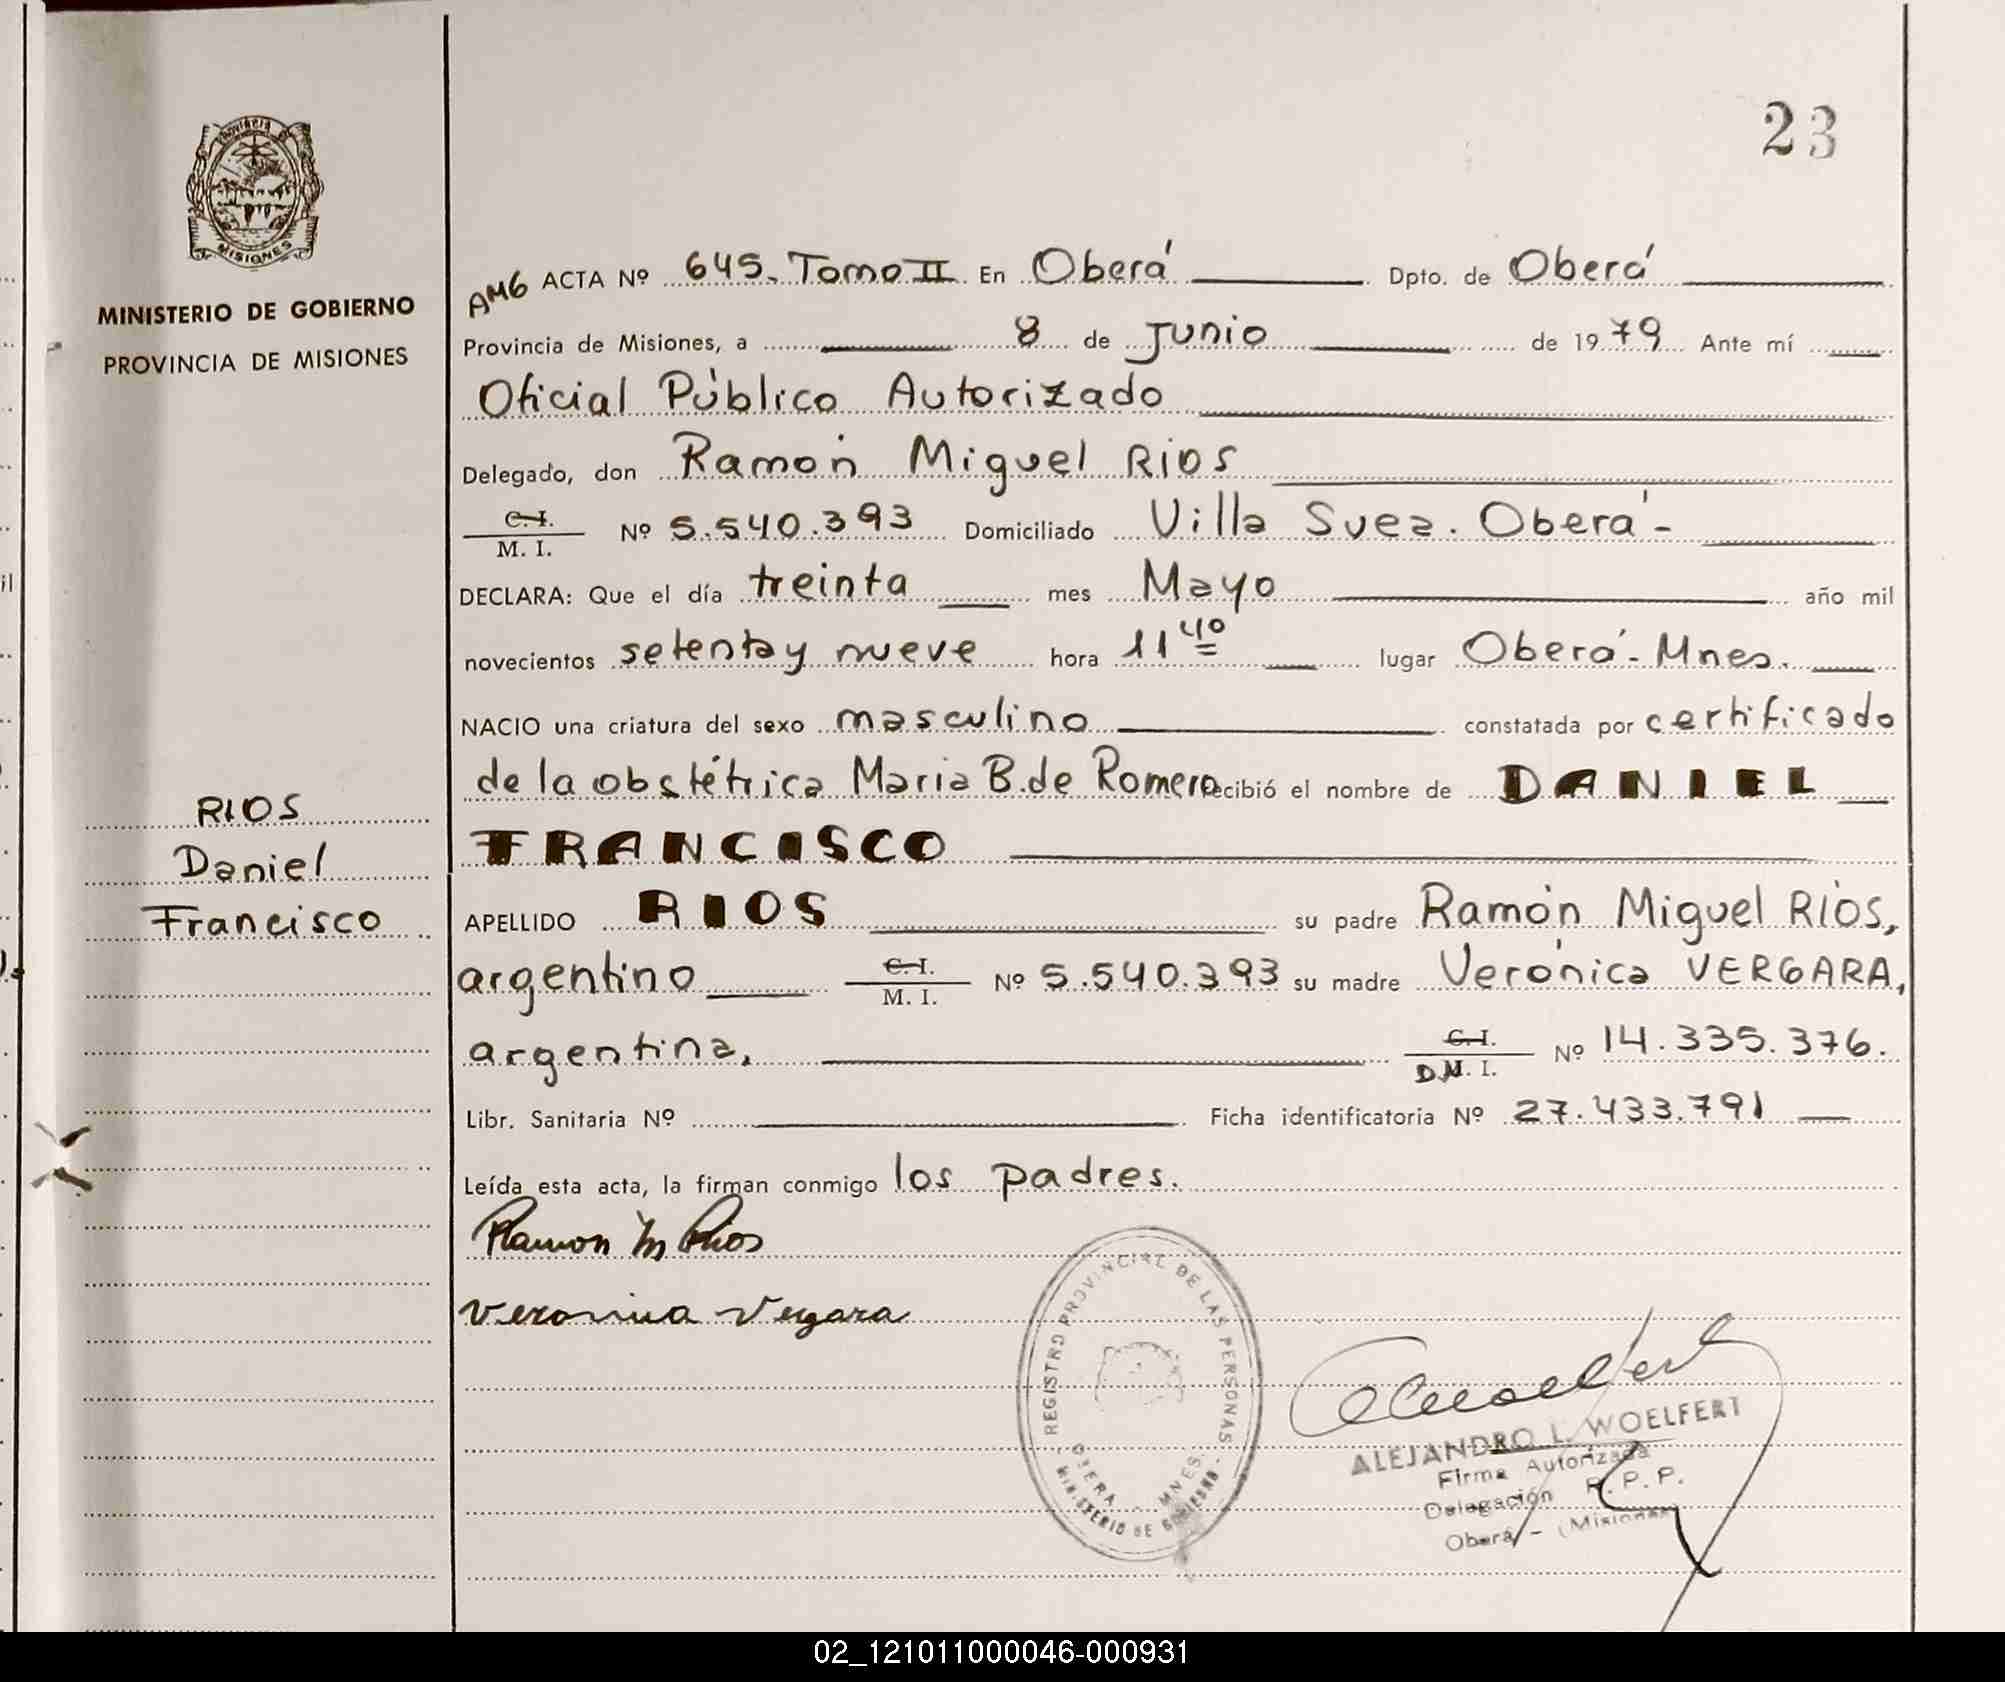 23
Provincia
MISIONES
MINISTERIO DE GOBIERNO
PROVINCIA DE MISIONES
AMG ACTA Nº 645. Tomo II En Oberá Dpto. de Oberá
Provincia de Misiones, a 8 de Junio de 1979 Ante mí
Oficial Público Autorizado
Delegado, don Ramón Miguel Rios
C.I. / M. I. Nº 5.540.393 Domiciliado Villa Suez. Oberá-
DECLARA: Que el día treinta mes Mayo año mil
novecientos setenta y nueve hora 11 40 lugar Oberá-Mnes.
NACIO una criatura del sexo masculino constatada por certificado
de la obstétrica Maria B. de Romero recibió el nombre de DANIEL
FRANCISCO
APELLIDO RIOS su padre Ramón Miguel Ríos,
argentino C.I. / M. I. Nº 5.540.393 su madre Verónica VERGARA,
argentina, C.I. / D.N.I. Nº 14.335.376.
Libr. Sanitaria Nº Ficha identificatoria Nº 27.433.791
Leída esta acta, la firman conmigo los padres.
Ramon M Rios
Veronica Vergara
RIOS
Daniel
Francisco
REGISTRO PROVINCIAL DE LAS PERSONAS
OBERA - MNES.
MINISTERIO DE GOBIERNO
ALEJANDRO L. WOELFERT
Firma Autorizada
Delegación R. P. P.
Oberá - (Misiones)
02_121011000046-000931